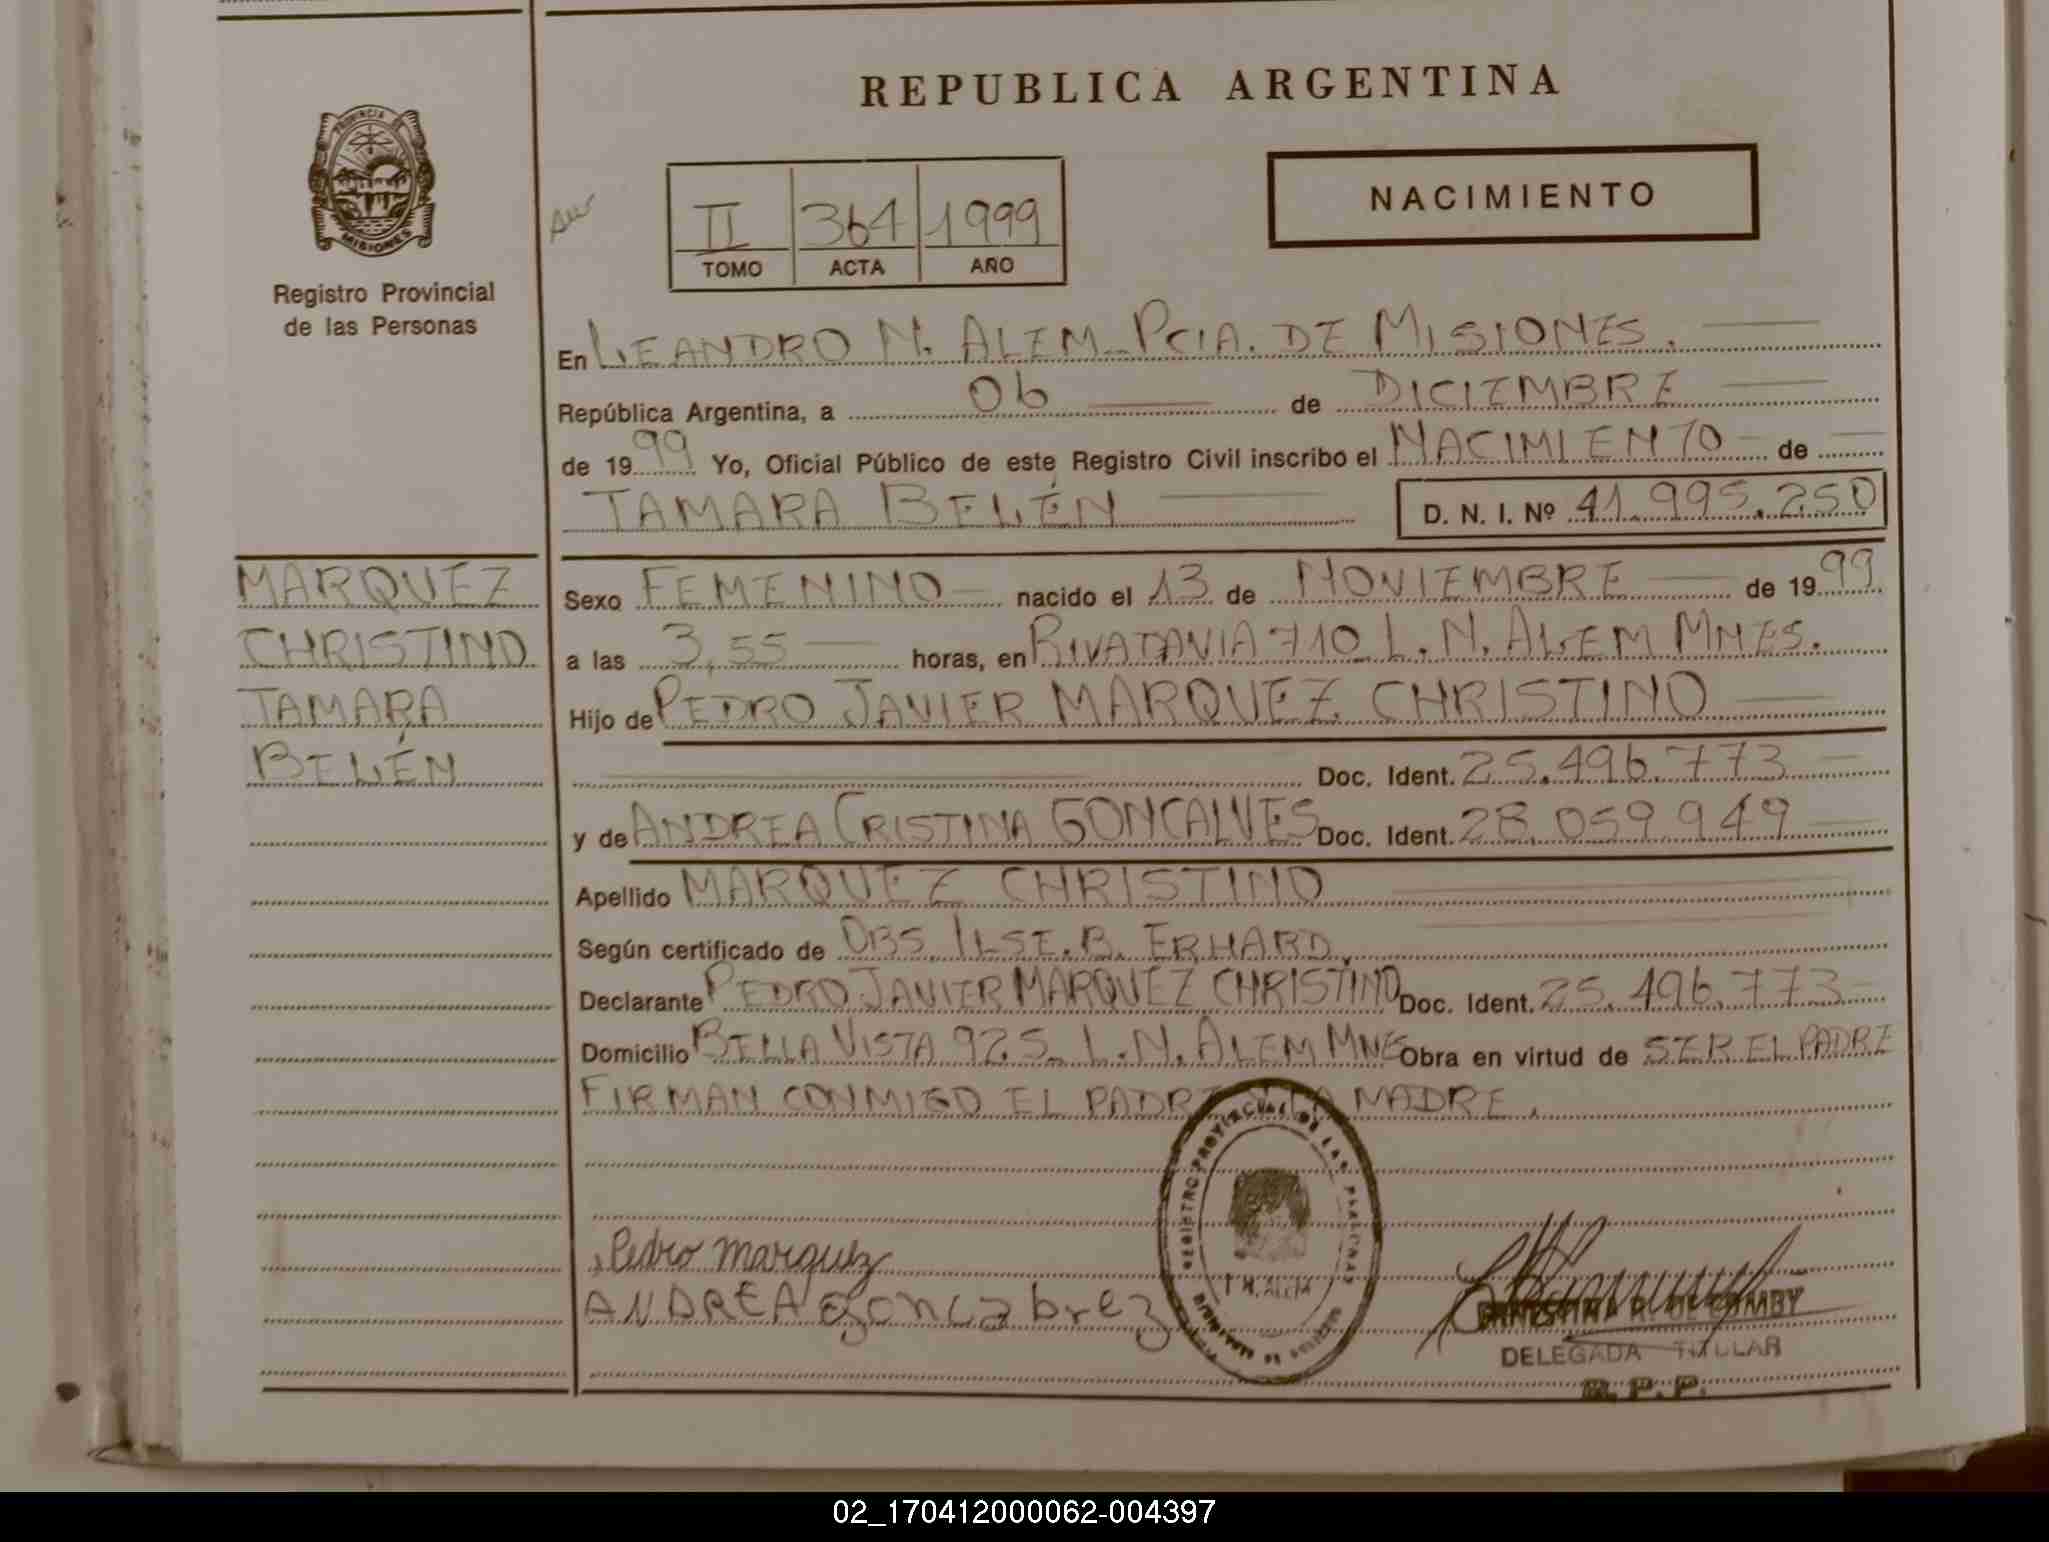 REPUBLICA ARGENTINA
PROVINCIA DE
MISIONES
Registro Provincial
de las Personas
II 364 1999
TOMO ACTA AÑO
NACIMIENTO
En LEANDRO N. ALEM - PCIA. DE MISIONES.
República Argentina, a 06 de DICIEMBRE
de 1999 Yo, Oficial Público de este Registro Civil inscribo el NACIMIENTO de
TAMARA BELÉN D. N. I. Nº 41.995.250
MARQUEZ
CHRISTINO
TAMARA
BELÉN
Sexo FEMENINO nacido el 13 de NOVIEMBRE de 1999
a las 3,55 horas, en RIVADAVIA 710 L. N. ALEM MNES.
Hijo de PEDRO JAVIER MARQUEZ CHRISTINO
Doc. Ident. 25.496.773
y de ANDREA CRISTINA GONCALVES Doc. Ident. 28.059.949
Apellido MARQUEZ CHRISTINO
Según certificado de OBS. ILSE. B. ERHARD.
Declarante PEDRO JAVIER MARQUEZ CHRISTINO Doc. Ident. 25.496.773
Domicilio BELLA VISTA 925 L. N. ALEM MNES Obra en virtud de SER EL PADRE
FIRMAN CONMIGO EL PADRE Y LA MADRE.
REGISTRO PROVINCIAL DE LAS PERSONAS
L. N. ALEM
Pedro marquez
ANDREA goncabrez
DELEGADA TITULAR
R. P. P.
02_170412000062-004397